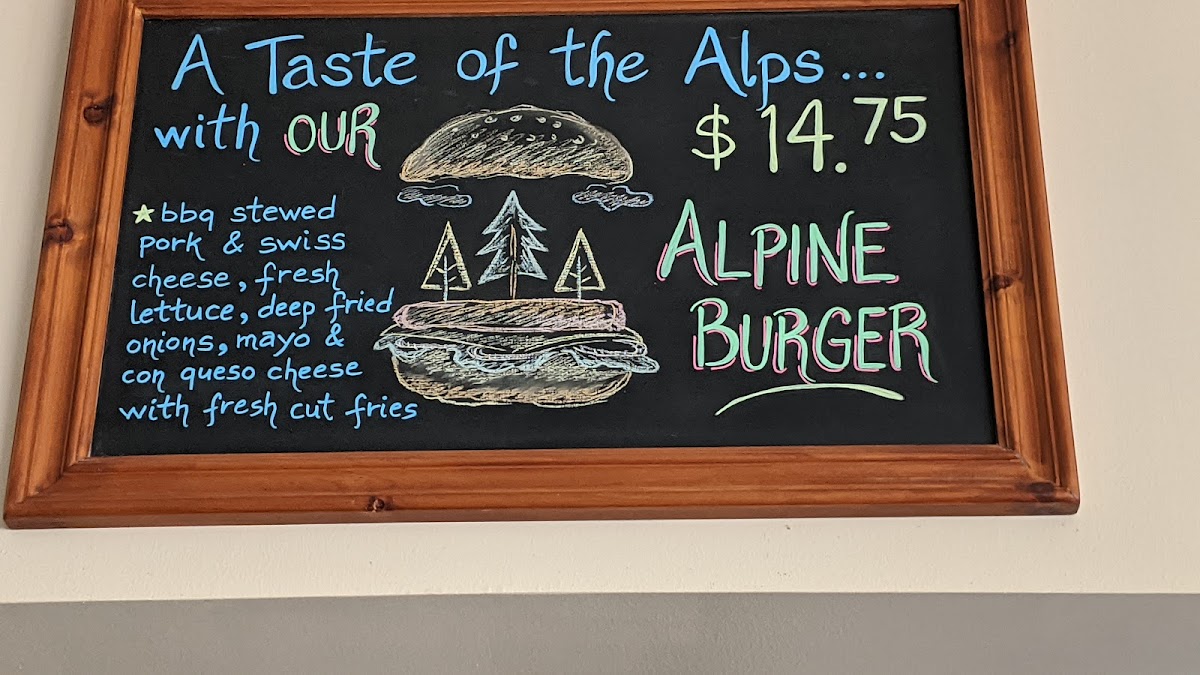 A Taste of the Alps...
with OUR
$14.75
ALPINE
BURGER
★bbq stewed
pork & swiss
cheese, fresh
lettuce, deep fried
onions, mayo &
con queso cheese
with fresh cut fries